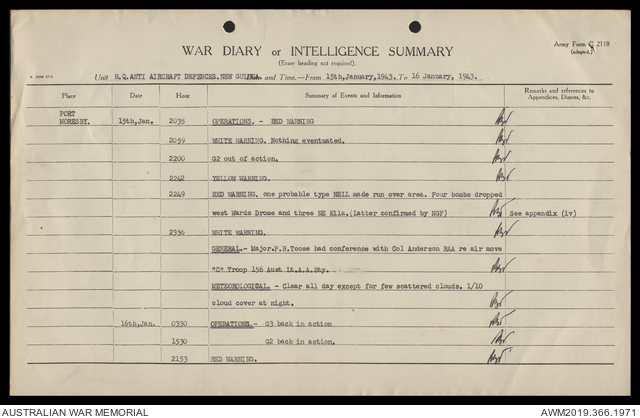 WAR DIARY or INTELLIGENCE SUMMARY
(Erase heading not required).
Army Form C 2118
(adapted)
Unit H.Q.ANTI AIRCRAFT DEFENCES,NEW GUINEA. and Time.—From 15th,January,1943. To 16 January, 1943.
Place Date Hour Summary of Events and Information Remarks and references to Appendices, Diaries, &c.
PORT
MORESBY. 15th,Jan. 2035 OPERATIONS. - RED WARNING
2059 WHITE WARNING. Nothing eventuated.
2200 G2 out of action.
2242 YELLOW WARNING.
2249 RED WARNING. one probable type NELL made run over area. Four bombs dropped
west Wards Drome and three NE Kila.(Latter confirmed by NGF) See appendix (iv)
2356 WHITE WARNING.
GENERAL.- Major.P.B.Toose had conference with Col Anderson RAA re air move
"C" Troop 156 Aust Lt.A.A.Bty.
METEOROLOGICAL. - Clear all day except for few scattered clouds. 1/10
cloud cover at night.
16th,Jan. 0330 OPERATIONS.- G3 back in action
1530 G2 back in action.
2153 RED WARNING.
AUSTRALIAN WAR MEMORIAL AWM2019.366.1971